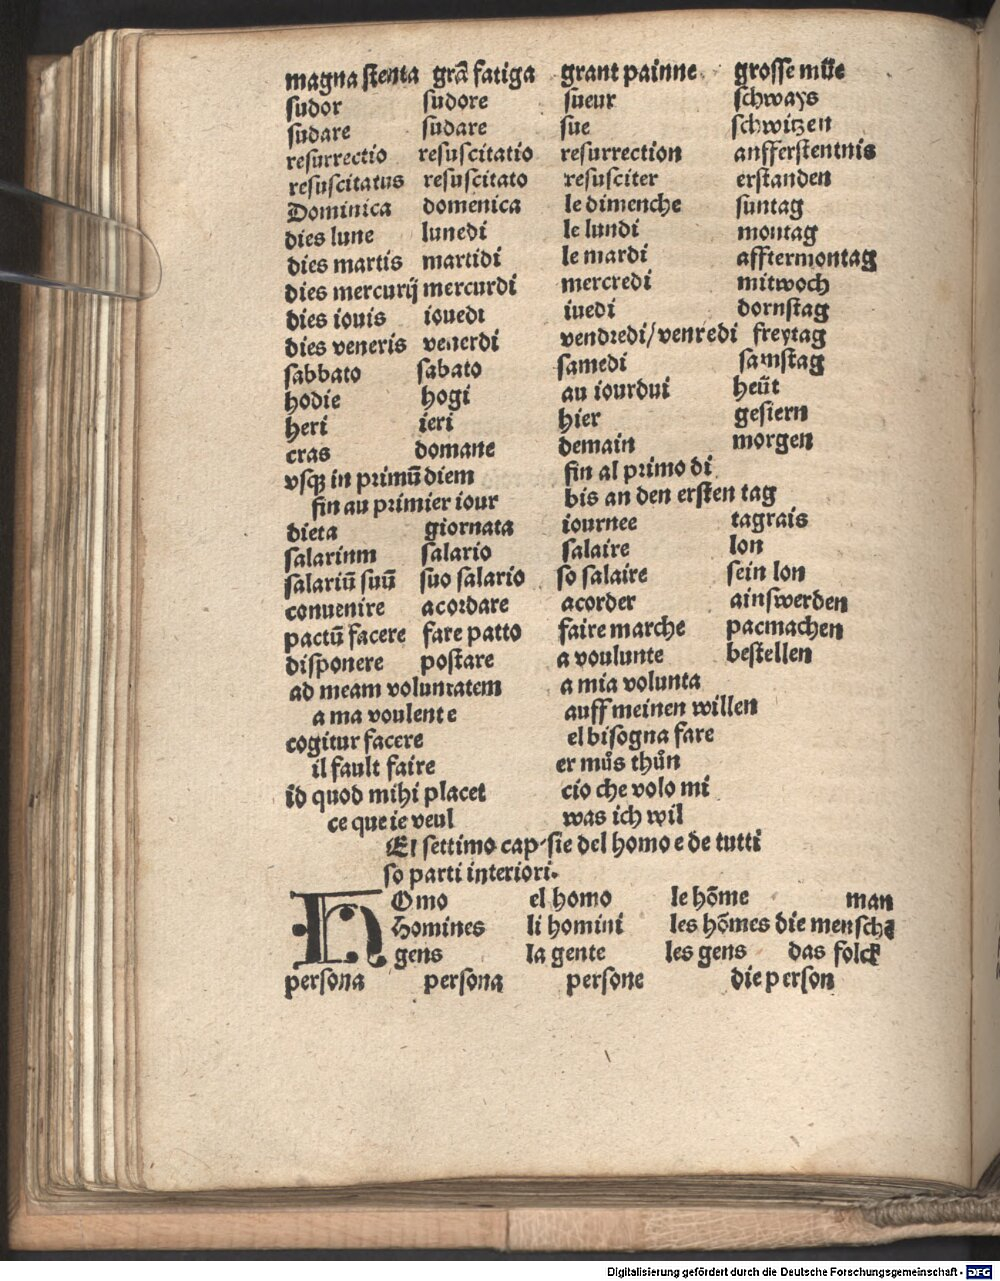 magna stenta grã fatiga grant painne grosse müe
sudor sudore sueur schways
sudare sudare sue schwitzen
resurrectio resuscitatio resurrection aufferstentnis
resuscitatus resuscitato resusciter erstanden
Dominica domenica le dimenche suntag
dies lune lunedi le lundi montag
dies martis martidi le mardi afftermontag
dies mercurij mercurdi mercredi mitwoch
dies iouis iouedi iuedi dornstag
dies veneris venerdi vendredi/venredi freytag
sabbato sabato samedi samstag
hodie hogi au iourdui heüt
heri ieri hier gestern
cras domane demain morgen
vsqz in primũ diem fin al primo di
fin au primier iour bis an den ersten tag
dieta giornata iournee tagrais
salarinm salario salaire lon
salariũ suũ suo salario so salaire sein lon
conuenire acordare acorder ainswerden
pactũ facere fare patto faire marche pacmachen
disponere postare a voulunte bestellen
ad meam voluntatem a mia volunta
a ma voulente auff meinen willen
cogitur facere el bisogna fare
il fault faire er muͦs thuͦn
id quod mihi placet cio che volo mi
ce que ie veul was ich wil
El settimo cap sie del homo e de tutti
so parti interiori.
HOmo el homo le hõme man
Homines li homini les hõmes die mensche
gens la gente les gens das folck
persona persona persone die person
Digitalisierung gefördert durch die Deutsche Forschungsgemeinschaft - DFG